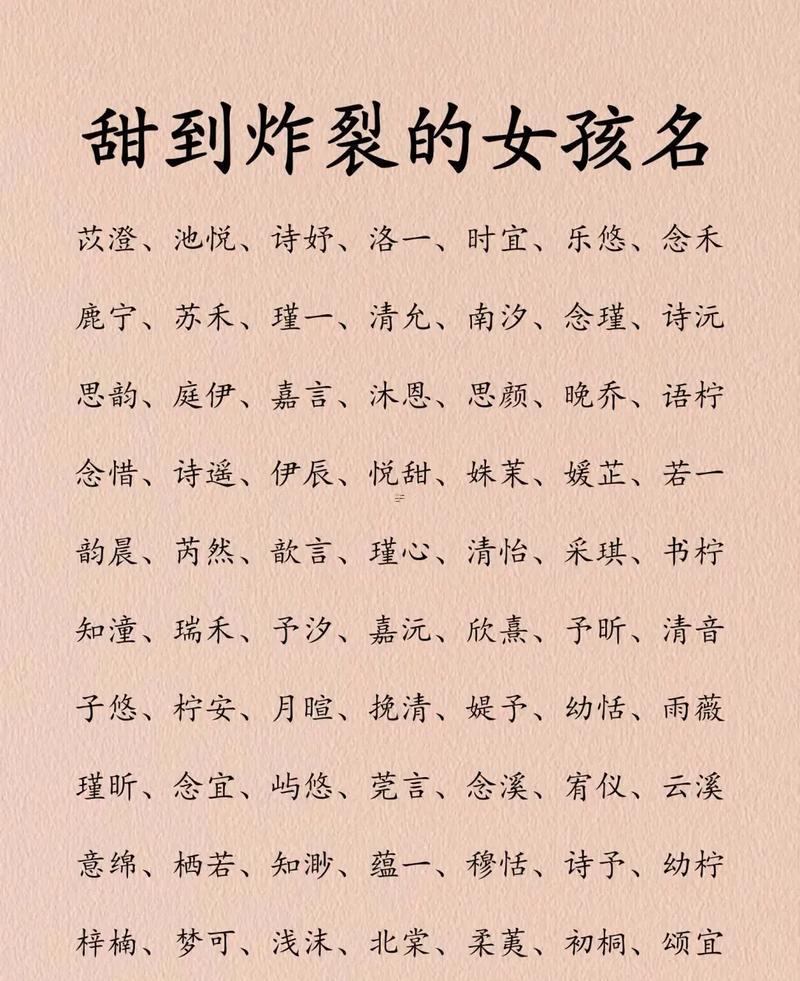 甜到炸裂的女孩名
苡澄、池悦、诗妤、洛一、时宜、乐悠、念禾
鹿宁、苏禾、瑾一、清允、南汐、念瑾、诗沅
思韵、庭伊、嘉言、沐恩、思颜、晚乔、语柠
念惜、诗遥、伊辰、悦甜、姝茉、媛芷、若一
韵晨、芮然、歆言、瑾心、清怡、采琪、书柠
知潼、瑞禾、予汐、嘉沅、欣熹、予昕、清音
子悠、柠安、月暄、挽清、媞予、幼恬、雨薇
瑾昕、念宜、屿悠、莞言、念溪、宥仪、云溪
意绵、栖若、知渺、蕴一、穆恬、诗予、幼柠
梓楠、梦可、浅沫、北棠、柔荑、初桐、颂宜